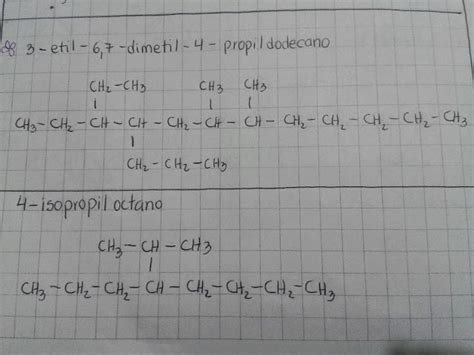 3-etil-6,7-dimetil-4-propildodecano
CH₂-CH₃ CH₃ CH₃
CH₃-CH₂-CH-CH-CH₂-CH-CH-CH₂-CH₂-CH₂-CH₂-CH₃
CH₂-CH₂-CH₃
4-isopropiloctano
CH₃-CH-CH₃
CH₃-CH₂-CH₂-CH-CH₂-CH₂-CH₂-CH₃